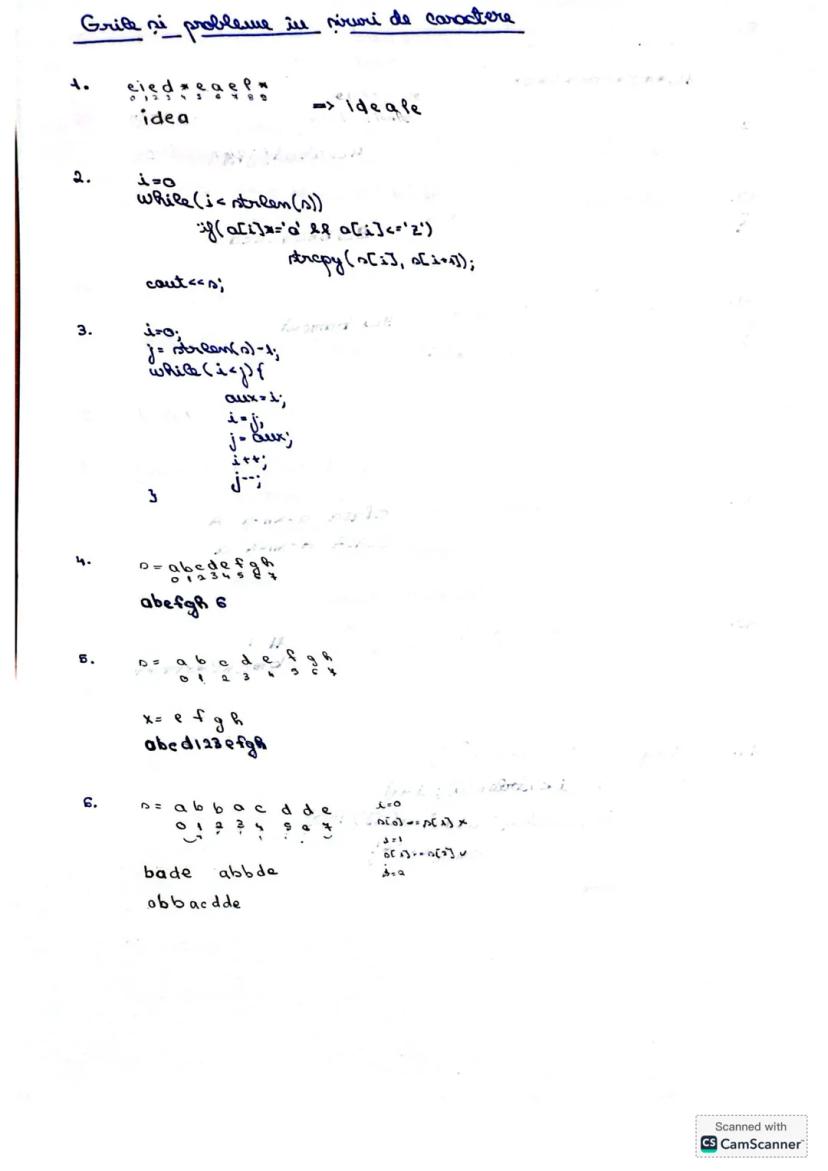 Grile și probleme în șiruri de caractere
1. eied*eael*
0 1 2 3 4 5 6 7 8 9
idea => ideale
2. i=0
while(i<strlen(s))
if(s[i]>='a' && s[i]<='z')
strcpy(s[i], s[i+1]);
cout<<s;
3. i=0;
j=strlen(s)-1;
while(i<j){
aux=i;
i=j;
j=aux;
i++;
j--;
}
4. s=abcdefgh
0 1 2 3 4 5 6 7
abefgh 6
5. s= a b c d e f g h
0 1 2 3 4 5 6 7
x= e f g h
abcd123efgh
6. s= a b b a c d d e
0 1 2 3 4 5 6 7
i=0
s[0]==s[1] x
i=1
s[1]==s[2] v
bade abbde
abbacdde
Scanned with
CS CamScanner